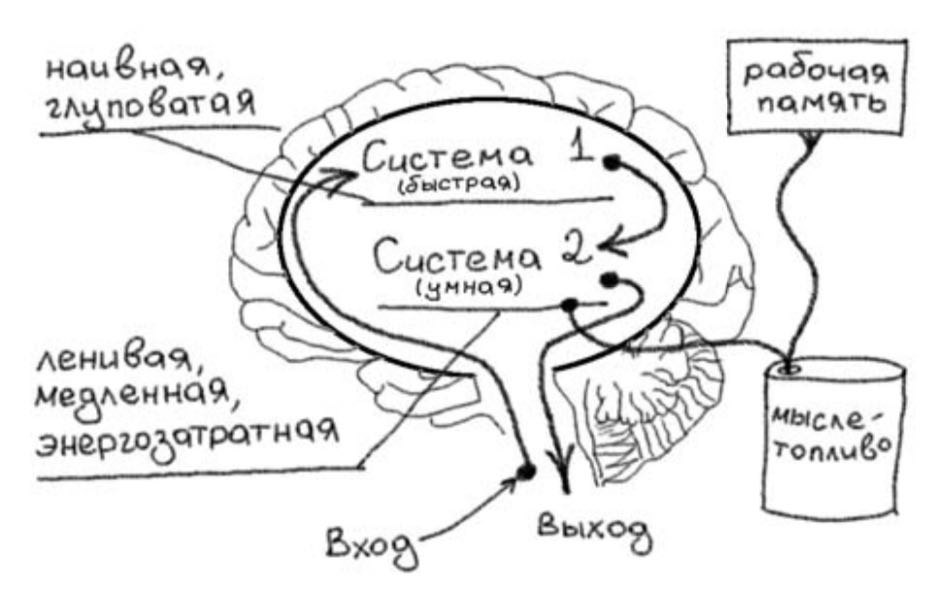 наивная,
глуповатая
Система 1
(быстрая)
Система 2
(умная)
рабочая
память
ленивая,
медленная,
энергозатратная
мысле-
топливо
Вход
Выход